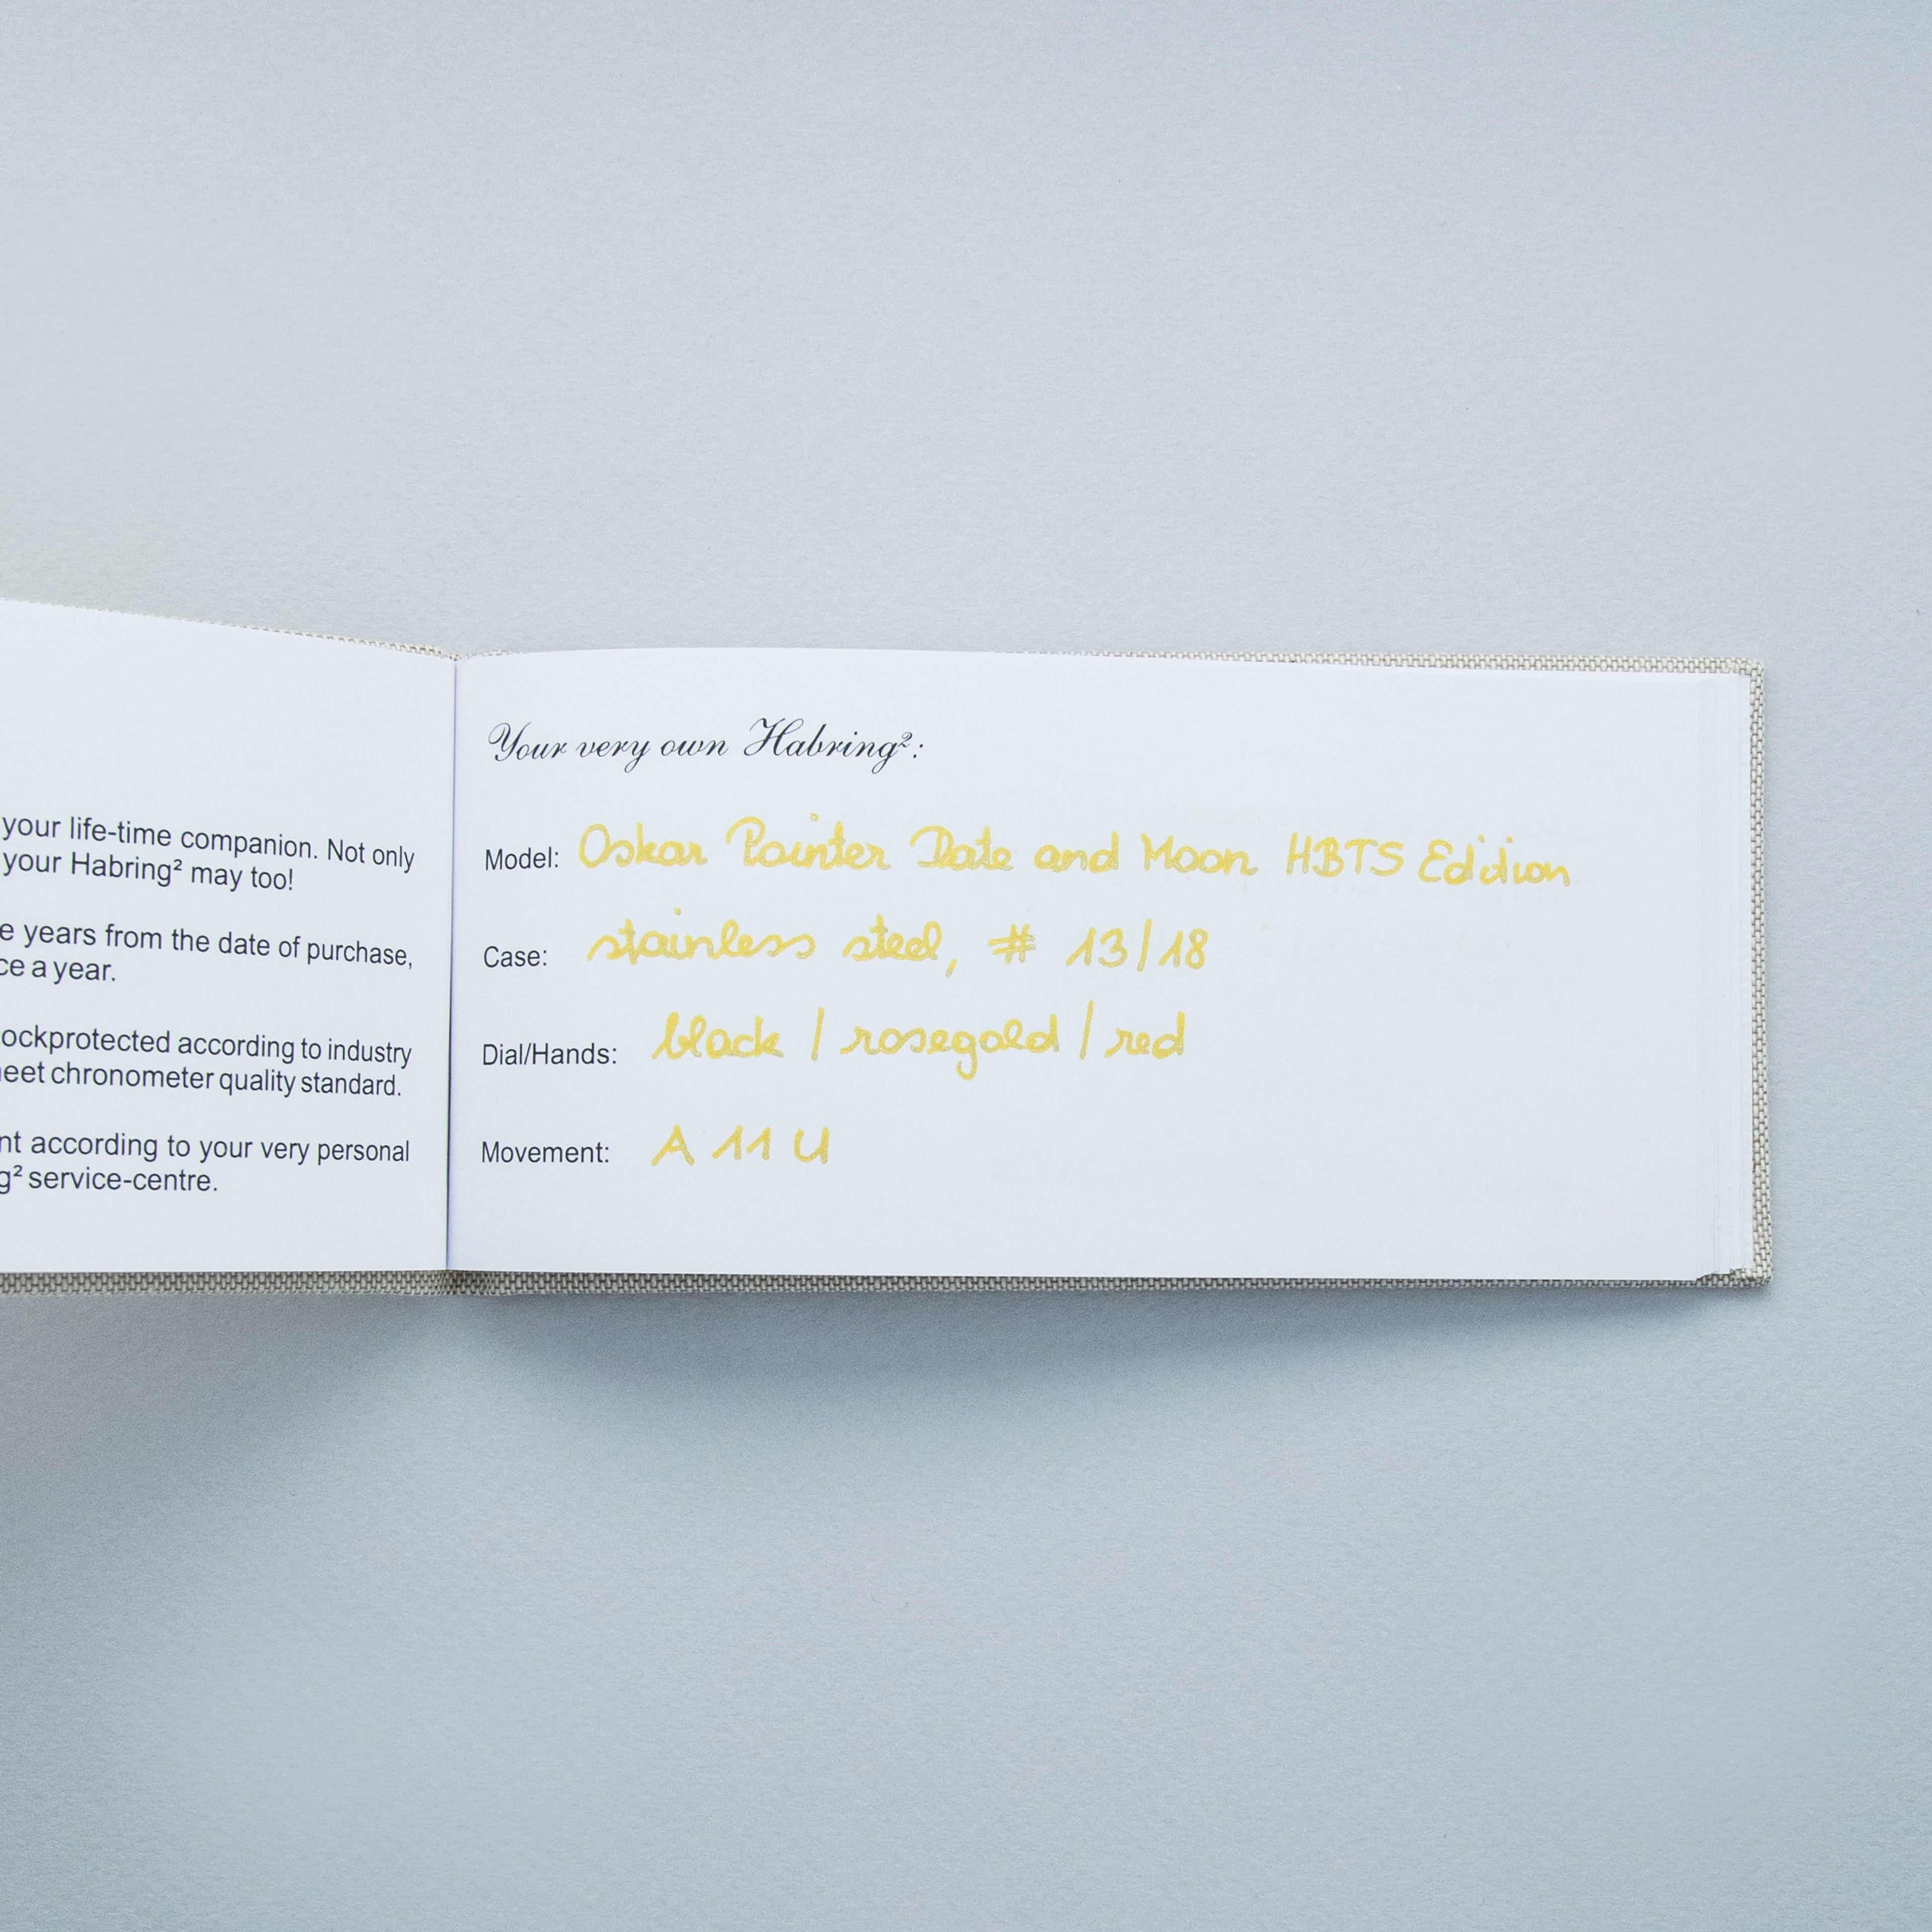 your life-time companion. Not only
your Habring² may too!
e years from the date of purchase,
ce a year.
ockprotected according to industry
eet chronometer quality standard.
nt according to your very personal
g² service-centre.
Your very own Habring²:
Model: Oskar Pointer Date and Moon HBTS Edition
Case: stainless steel, # 13/18
Dial/Hands: black / rosegold / red
Movement: A 11 U